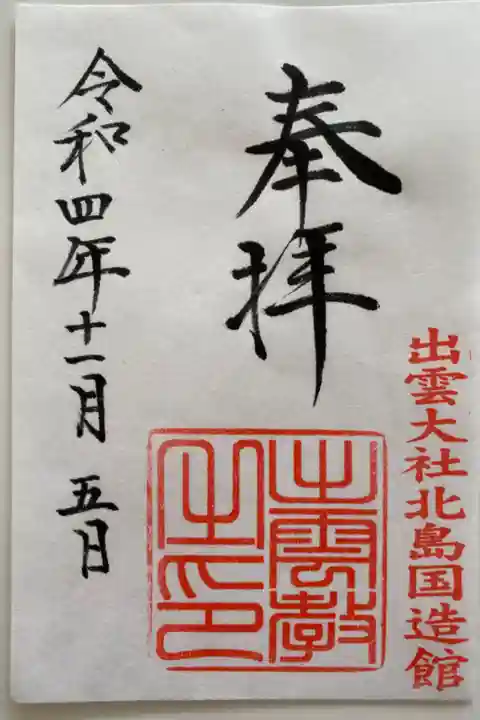 出雲大社北島国造館
奉拝
出雲教
之印
令和四年十一月五日